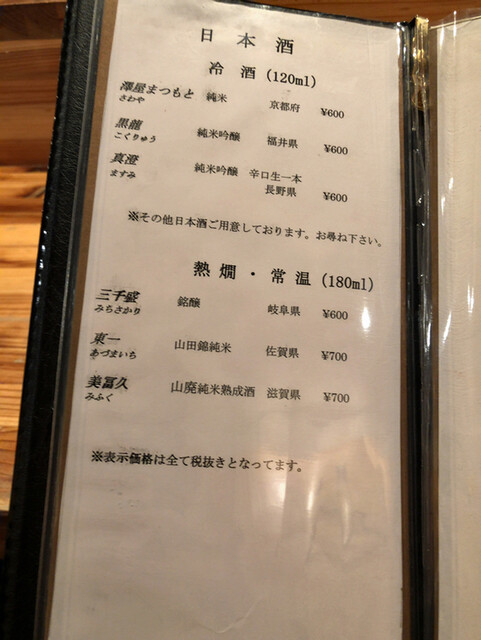 日本酒
冷酒(120ml)
澤屋まつもと 純米 京都府 ¥600
さわや
黒龍 純米吟醸 福井県 ¥600
こくりゅう
真澄 純米吟醸 辛口生一本
ますみ 長野県 ¥600
※その他日本酒ご用意しております。お尋ね下さい。
熱燗・常温(180ml)
三千盛 銘醸 岐阜県 ¥600
みちさかり
東一 山田錦純米 佐賀県 ¥700
あづまいち
美冨久 山廃純米熟成酒 滋賀県 ¥700
みふく
※表示価格は全て税抜きとなってます。